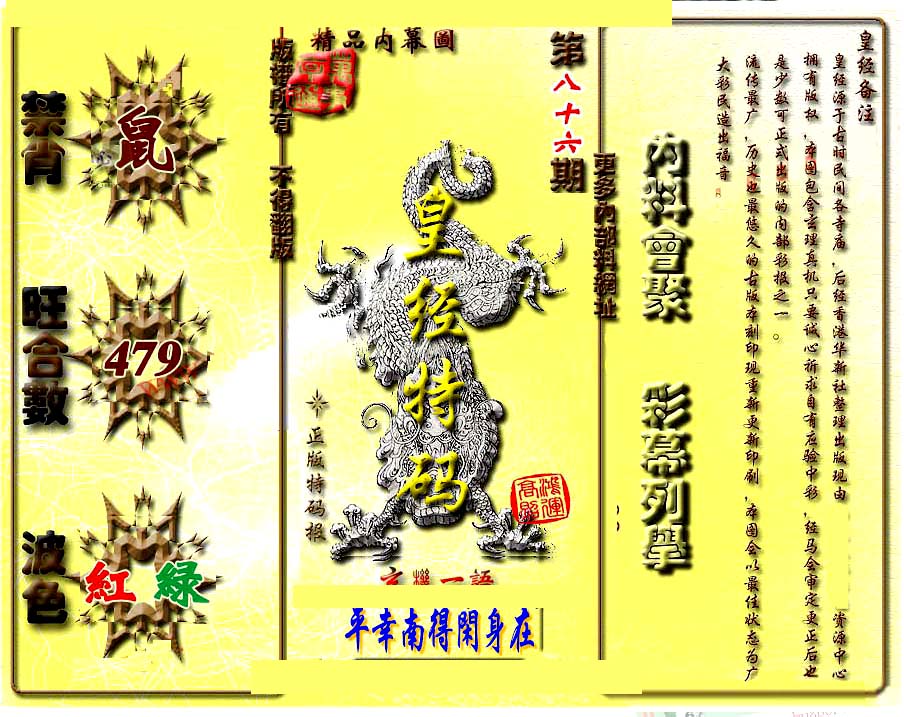 皇经备注
皇经源于古时民间各寺庙，后经香港华新社整理出版现由
资源中心
拥有版权，本图包含玄理真机只要诚心祈求自有应验中彩，经马会审定更正后也
是少数可正式出版的内部彩报之一。
流传最广，历史也最悠久的古版本刻印现重新更新印刷，本图会以最佳状态为广
大彩民造出福音。
内料會聚
彩幕列擧
更多內部料網址
第八十六期
精品内幕圖
皇经特码
正版特码报
鸿運高照
玄機一語
平幸南得閑身在
版權所有 不得翻版
禁肖
鼠
旺合數
479
波色
紅 綠